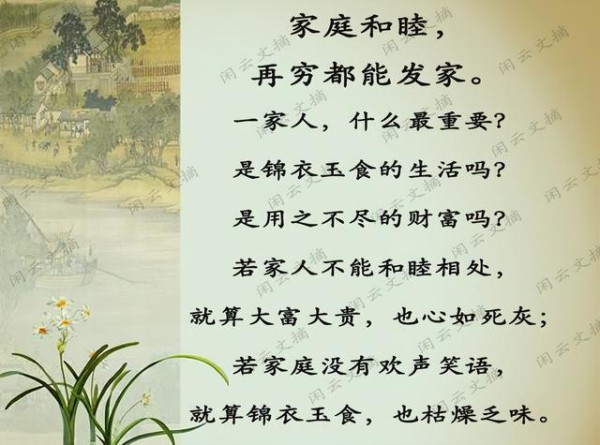 家庭和睦，
再穷都能发家。
一家人，什么最重要？
是锦衣玉食的生活吗？
是用之不尽的财富吗？
若家人不能和睦相处，
就算大富大贵，也心如死灰；
若家庭没有欢声笑语，
就算锦衣玉食，也枯燥乏味。
闲云文摘